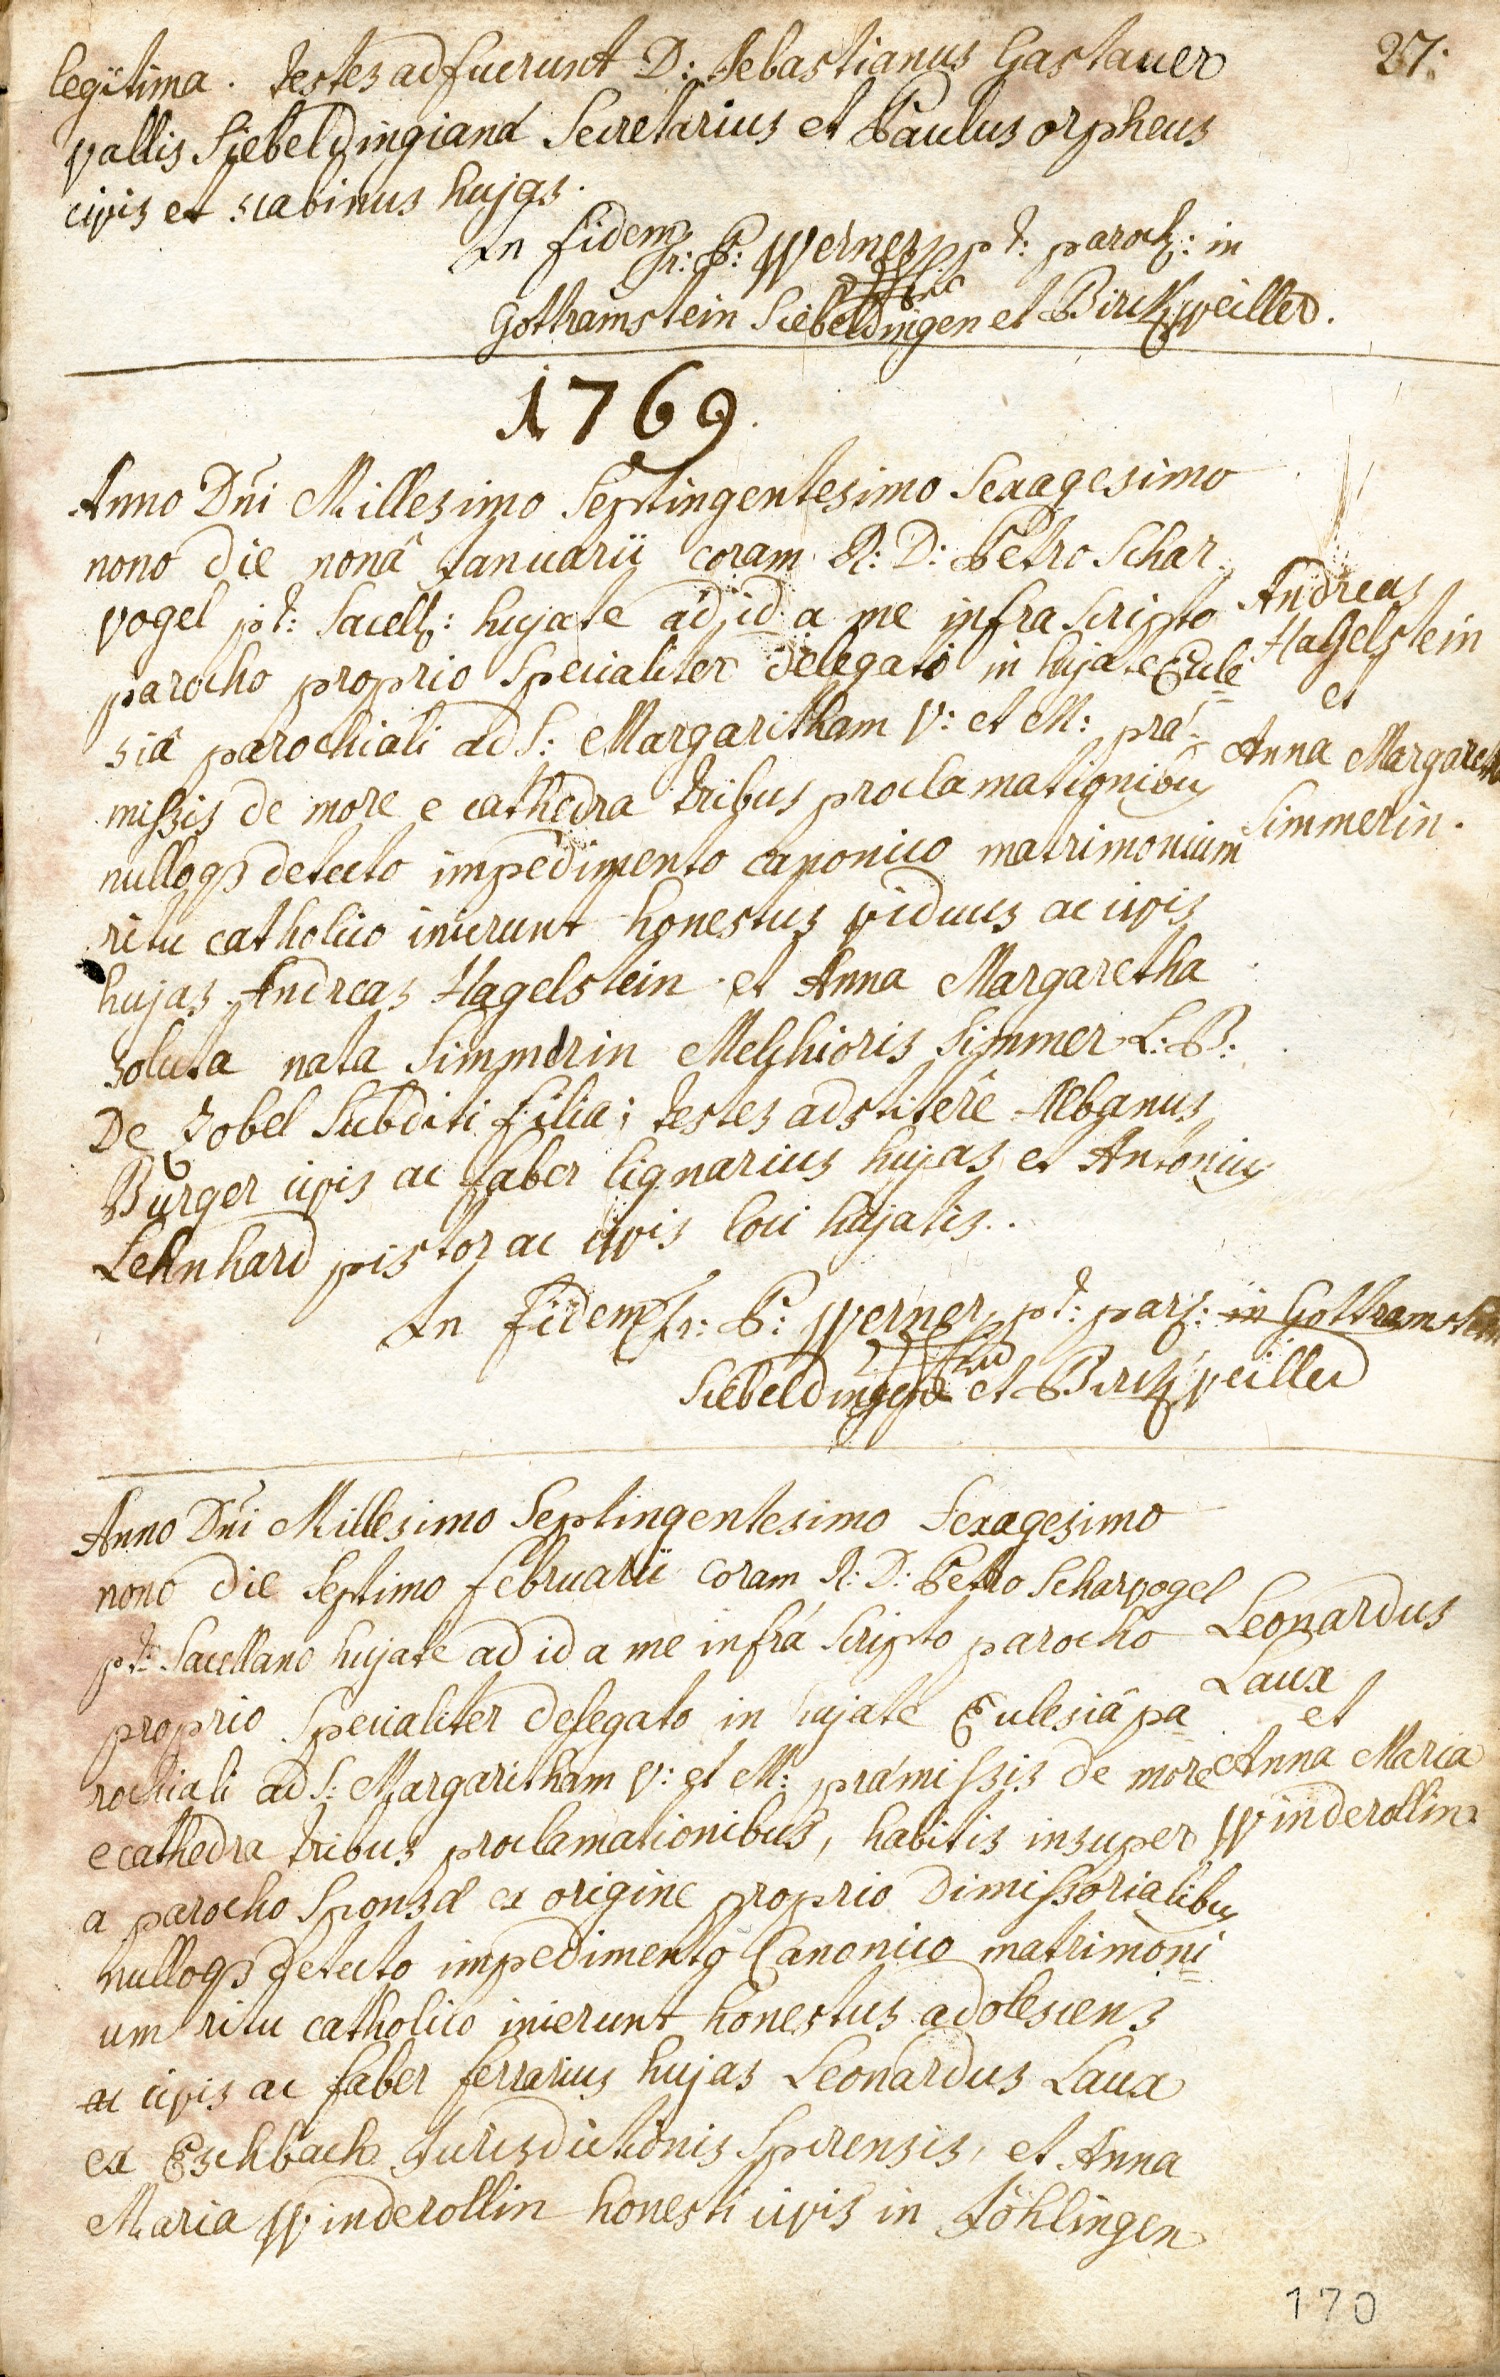 27.
legitima. testes adfuerunt D: Sebastianus Gastauer
vallis Siebeldingianæ Secretarius et Paulus orpheus
civis et scabinus hujas.
In fidem Fr: P: Werner p t: paroch: in
Gothramstein Siebeldingen et Birckweiller.
1769.
Anno Dni Millesimo Septingentesimo Sexagesimo
nono die nonâ Januarii coram R: D: Petro Schar
vogel pt: Sacell: hujate ad id a me infra Scripto
parocho proprio Specialiter delegato in hujate Eccle=
siâ parochiali ad S: Margaritham V: et M: præ=
missis de more e cathedra tribus proclamationibus
nulloq3 detecto impedimento canonico matrimonium
ritu catholico inierunt honestus viduus ac civis
hujas Andreas Hagelstein et Anna Margaretha
soluta nata Simmerin Melchioris Simmer L: B:
De Zobel Subditi filia; testes adstitêre Albanus
Burger civis ac faber lignarius hujas et Antonius
Lehnhard pistor ac civis loci hujatis.
Andreas
Hagelstein
et
Anna Margaretha
Simmerin.
In fidem Fr: P: Werner pt: par: in Gothramstein
Siebeldingen et Birckweiller
Anno Dni Millesimo Septingentesimo Sexagesimo
nono die Septimo februarii coram R: D: Petro Scharvogel
pt: Sacellano hujate ad id a me infrá Scripto parocho
proprio Specialiter delegato in hujate Ecclesiâ pa=
rochiali ad S: Margaritham V: et M: præmissis de more
e cathedra tribus proclamationibus, habitis insuper
a parocho Sponsæ ex origine proprio Dimissorialibus
nulloq3 detecto impedimento Canonico matrimoni=
um ritu catholico inierunt honestus adolescens
ac civis ac faber ferrarius hujas Leonardus Laux
ex Eschbach Jurisdictionis Spirensis, et Anna
Maria Winderollin honesti civis in Jöhlingen
Leonardus
Laux
et
Anna Maria
Winderollin
170